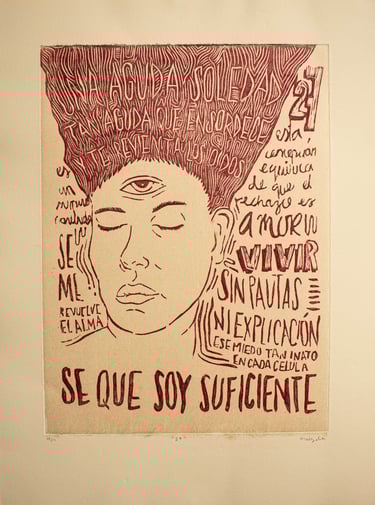 UNA AGUDA SOLEDAD
TAN AGUDA QUE ENSORDECE
Y TE REVIENTA LOS OIDOS
27
esta
equivoca
de que el
rechazo es
AMOR
VIVIR
SIN PAUTAS
NI EXPLICACIÓN
ESE MIEDO TAN INATO
EN CADA CELULA
es
un
SE
ME
REVUELVE
EL ALMA
SE QUE SOY SUFICIENTE